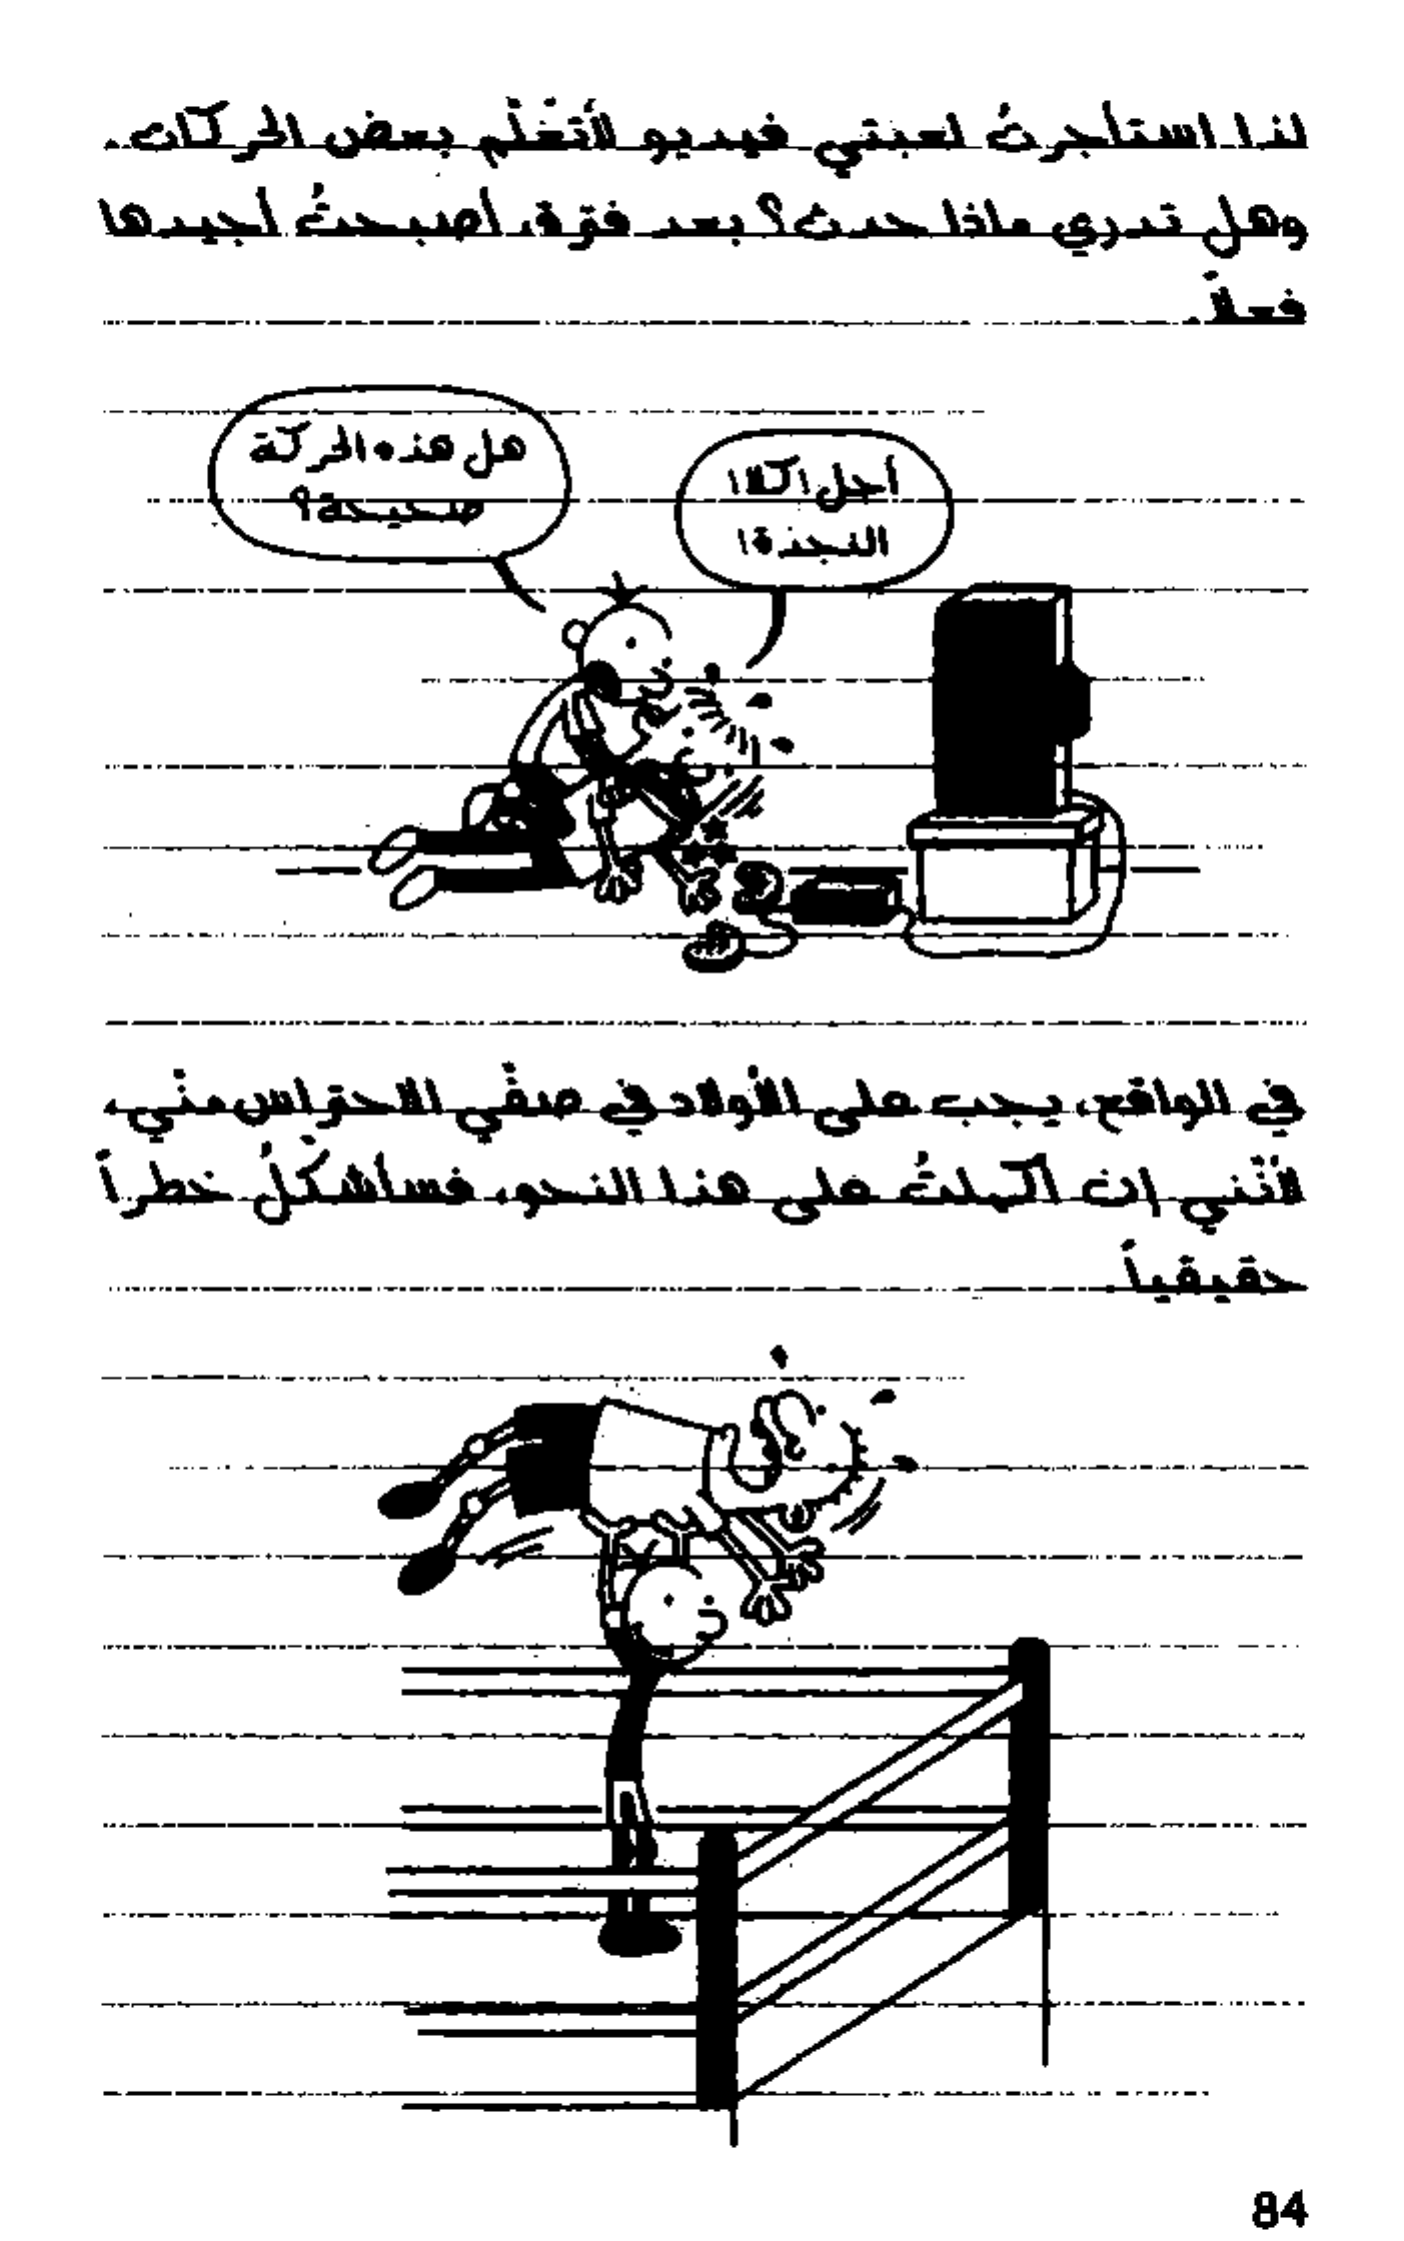 لذا استأجرتُ لعبتي فيديو لأتعَلَّم بعض الحركات.
وهل تدري ماذا حدث؟ بعد فترة، أصبحتُ أجيدها
فعلاً.
هل هذه الحركة
صحيحة؟
أجل! كلا!
النجدة!
في الواقع، يجب على الأولاد في صفّي الاحتراس منّي،
لأنّني إن أكملتُ على هذا النحو، فسأشكّلُ خطراً
حقيقياً.
84